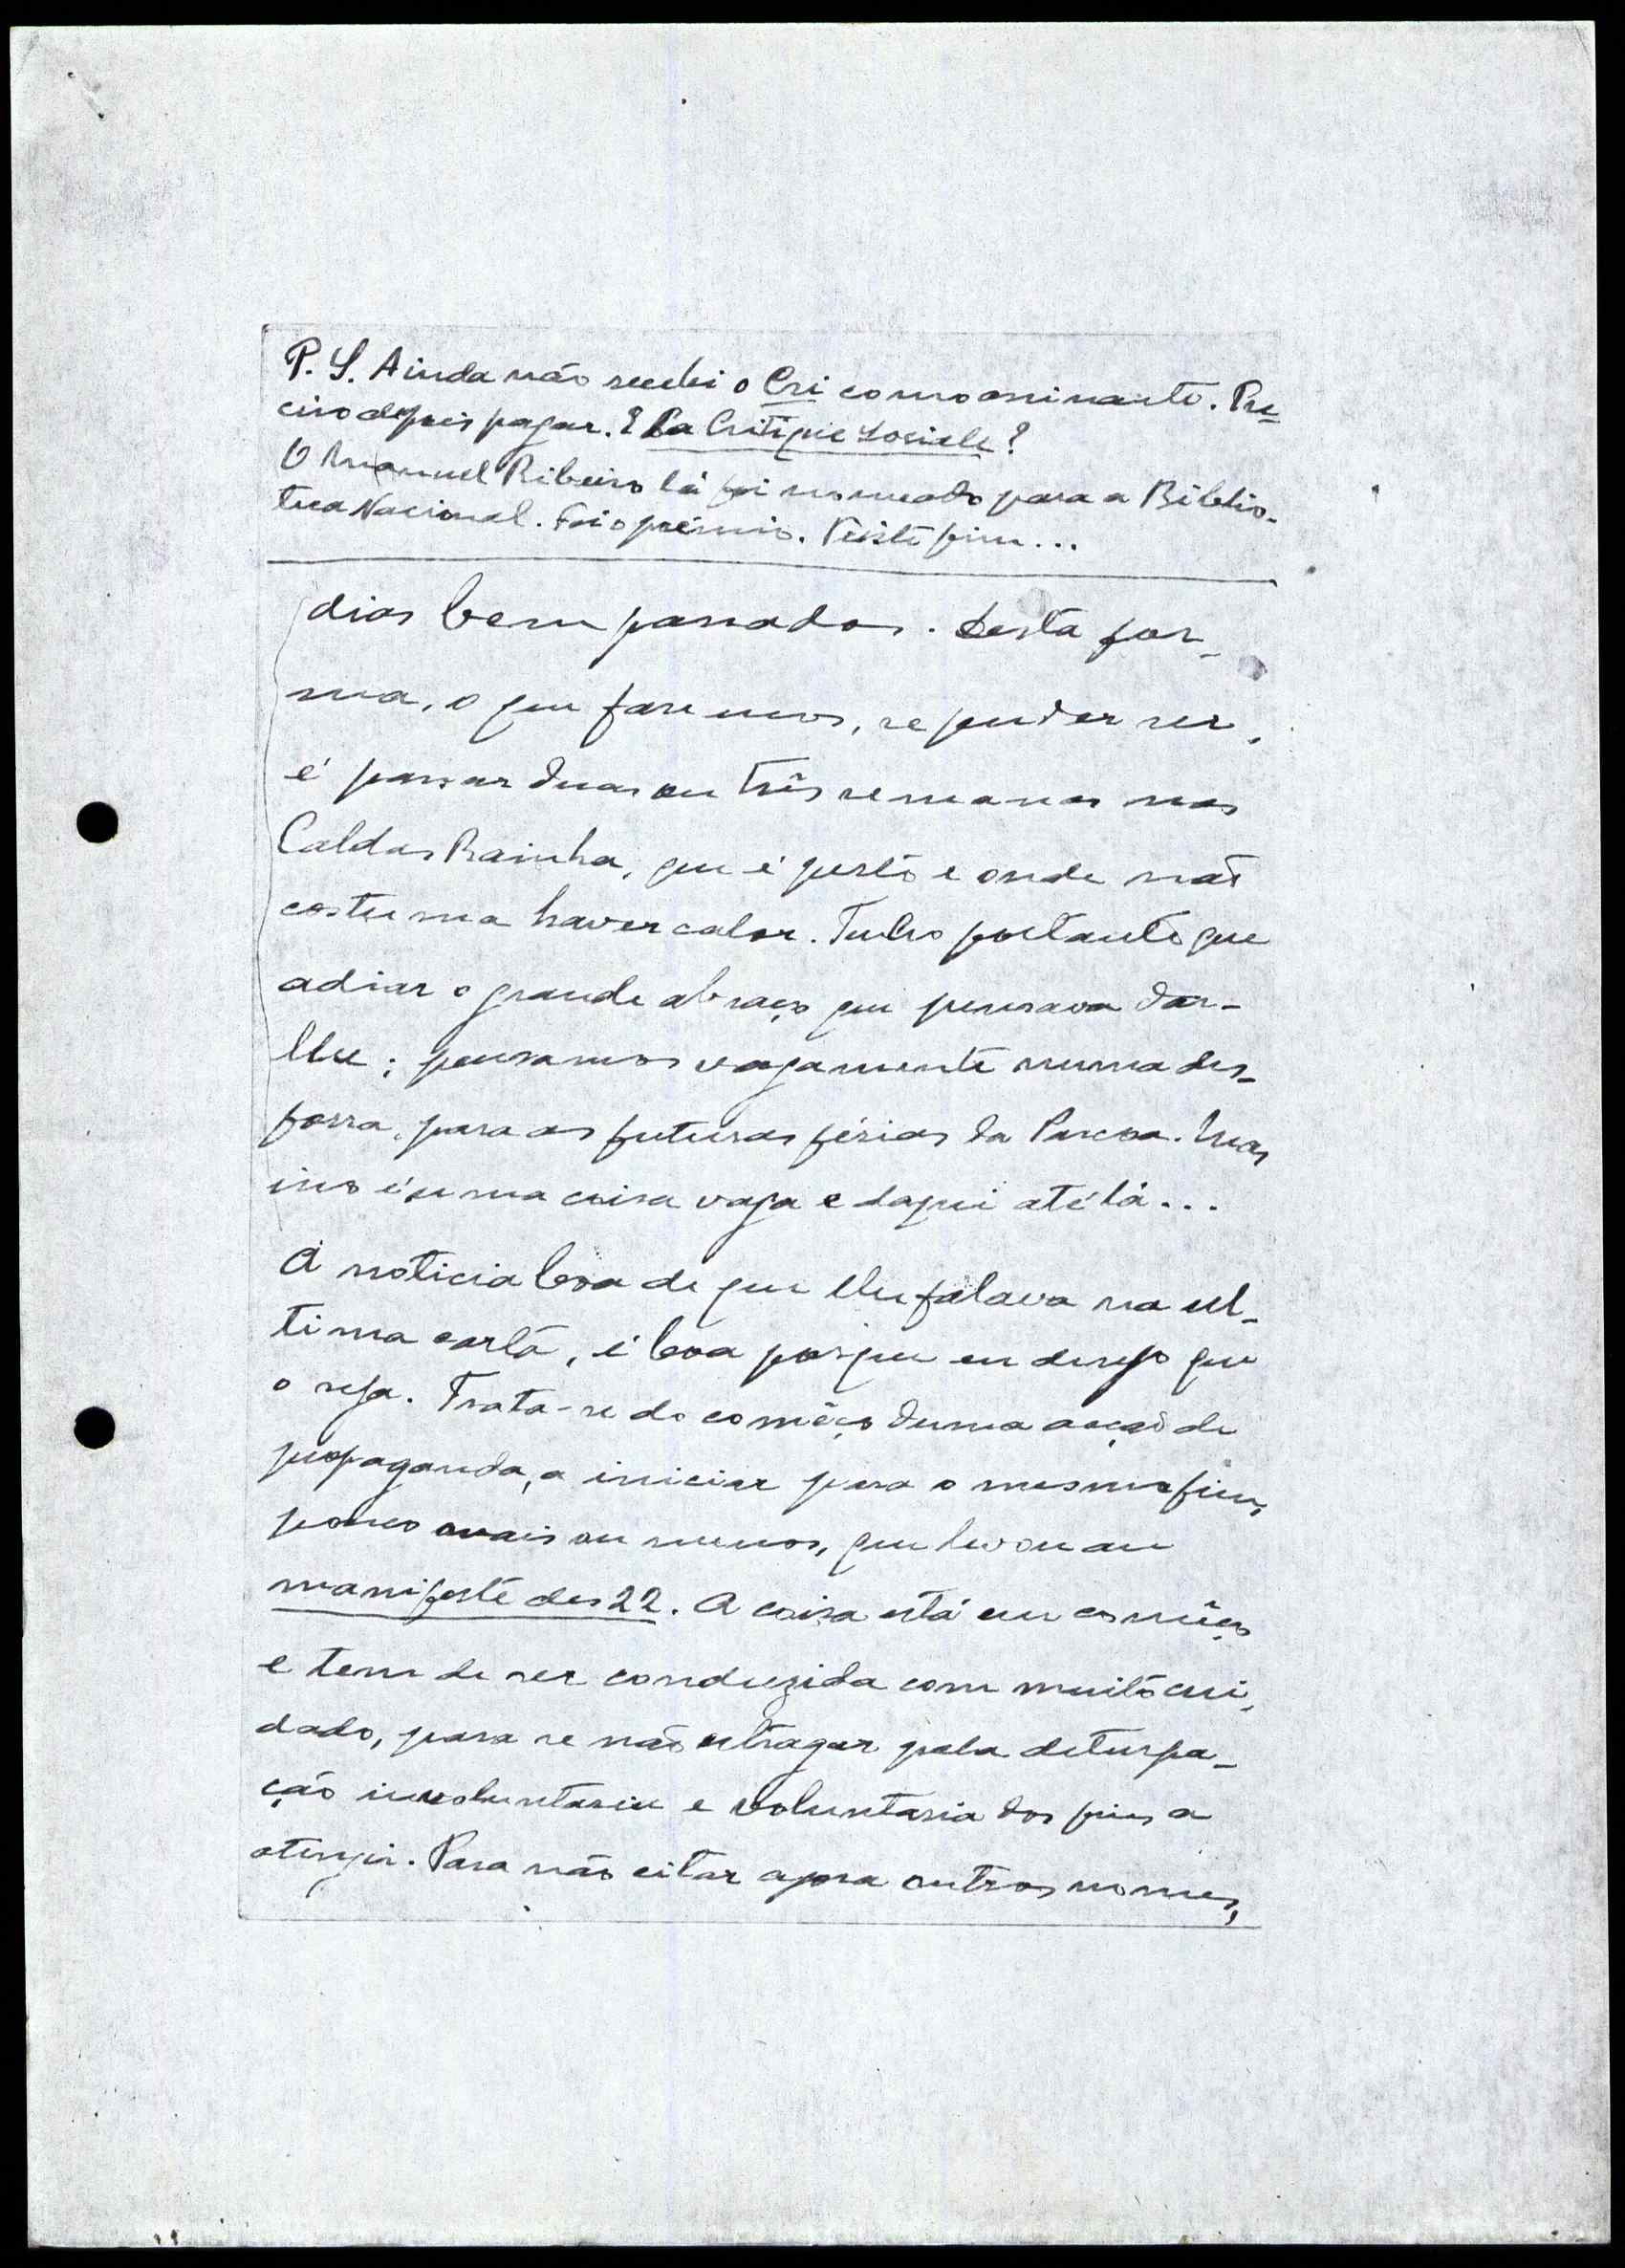 P.S. Ainda não recebi o Cri como assinante. Pre-
ciso depois pagar. E La Critique Sociale?
O Manuel Ribeiro lá foi nomeado para a Biblio-
teca Nacional. Foi o prémio. Triste fim...
dias bem passados. Desta for-
ma, o que faremos, se puder ser,
é passar duas ou três semanas nas
Caldas Rainha, que é perto e onde não
costuma haver calor. Tenho portanto que
adiar o grande abraço que pensava dar-
lhe; pensamos vagamente numa des-
forra, para as futuras férias da Pascoa. Mas
isso é uma coisa vaga e daqui até lá...
A noticia boa de que lhe falava na ul-
tima carta, é boa porque eu desejo que
o seja. Trata-se do comêço duma acção de
propaganda, a iniciar para o mesmo fim,
pouco mais ou menos, que levou au
manifeste des 22. A coisa está em comêço
e tem de ser conduzida com muito cui-
dado, para se não estragar pela deturpa-
ção involuntaria e voluntaria dos fins a
atingir. Para não citar agora outros nomes,